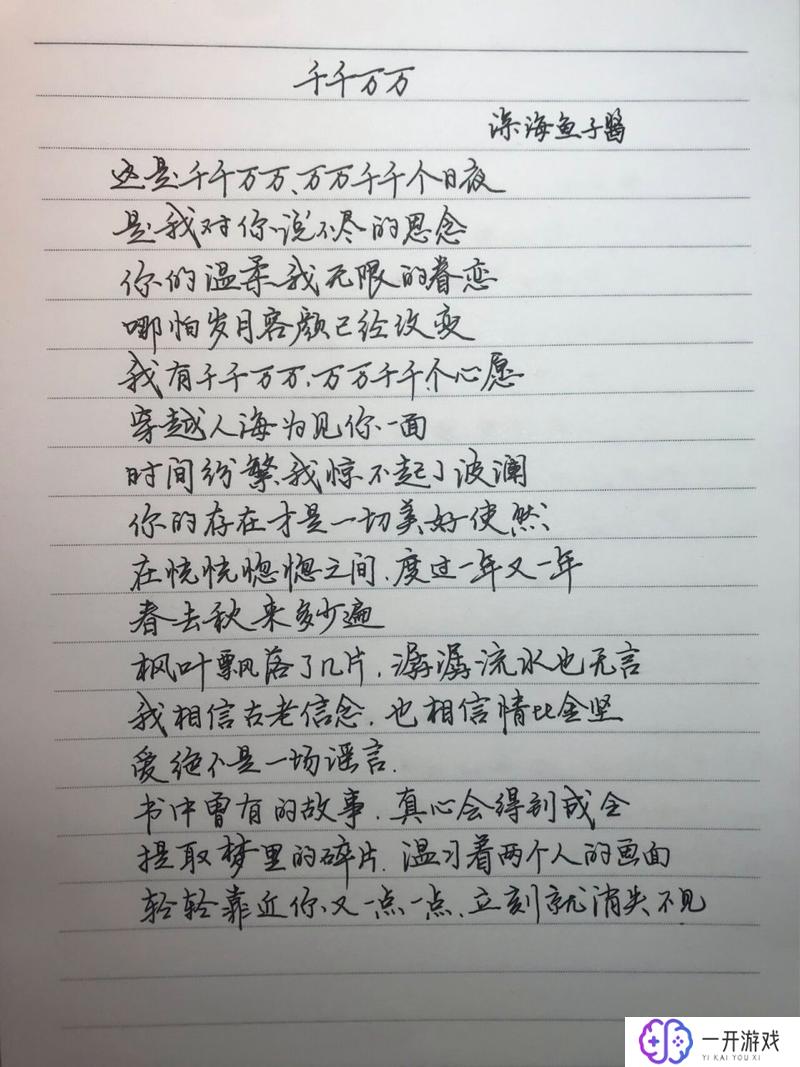 千千万万
深海鱼子醬
这是千千万万、万万千千个日夜
是我对你说不尽的思念
你的温柔我无限的眷恋
哪怕岁月容颜已经改变
我有千千万万、万万千千个心愿
穿越人海为见你一面
时间纷繁我惊不起了波澜
你的存在才是一切美好使然
在恍恍惚惚之间、度过一年又一年
春去秋来多少遍
枫叶飘落了几片,潺潺流水也无言
我相信古老信念,也相信情比金坚
爱绝不是一场谣言.
书中曾有的故事、真心会得到成全
提取梦里的碎片、温习着两个人的画面
轻轻靠近你又一点一点、立刻就消失不见
一开游戏
YI KAI YOU XI